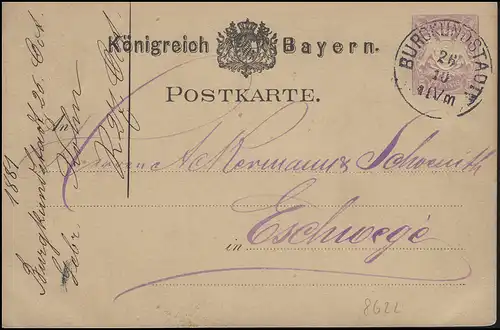 Königreich Bayern.
POSTKARTE.
BURGKUNDSTADT
26
10
11Vm
An
Herren Ackermann & Schmidt
in Eschwege
1881
Burgkundstadt 25. Oct.
Gebr.
8622